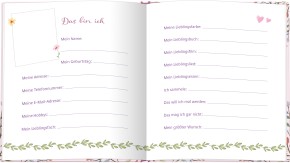 Das bin ich
Mein Name:
Mein Geburtstag:
Meine Adresse:
Meine Telefonnummer:
Meine E-Mail-Adresse:
Meine Hobbys:
Mein Lieblingsfach:
Meine Lieblingsfarbe:
Mein Lieblingsbuch:
Mein Lieblingsfilm:
Mein Lieblingstier:
Mein Lieblingsessen:
Ich sammele:
Das will ich mal werden:
Das mag ich gar nicht:
Mein größter Wunsch: